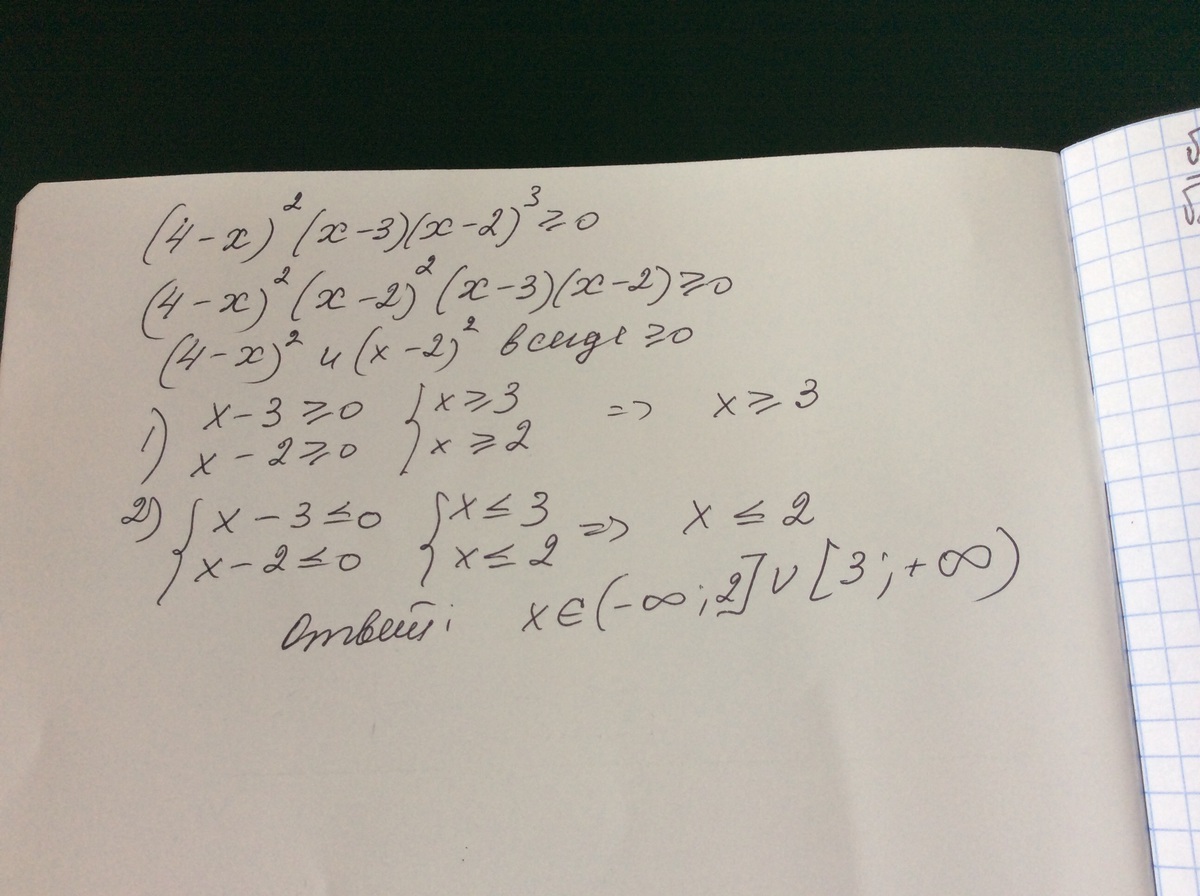 (4-x)²(x-3)(x-2)³≥0
(4-x)²(x-2)²(x-3)(x-2)≥0
(4-x)² и (x-2)² всегда ≥0
1) x-3≥0 {x≥3 => x≥3
x-2≥0 x≥2
2) {x-3≤0 {x≤3 => x≤2
x-2≤0 x≤2
Ответ: x∈(-∞;2]∪[3;+∞)